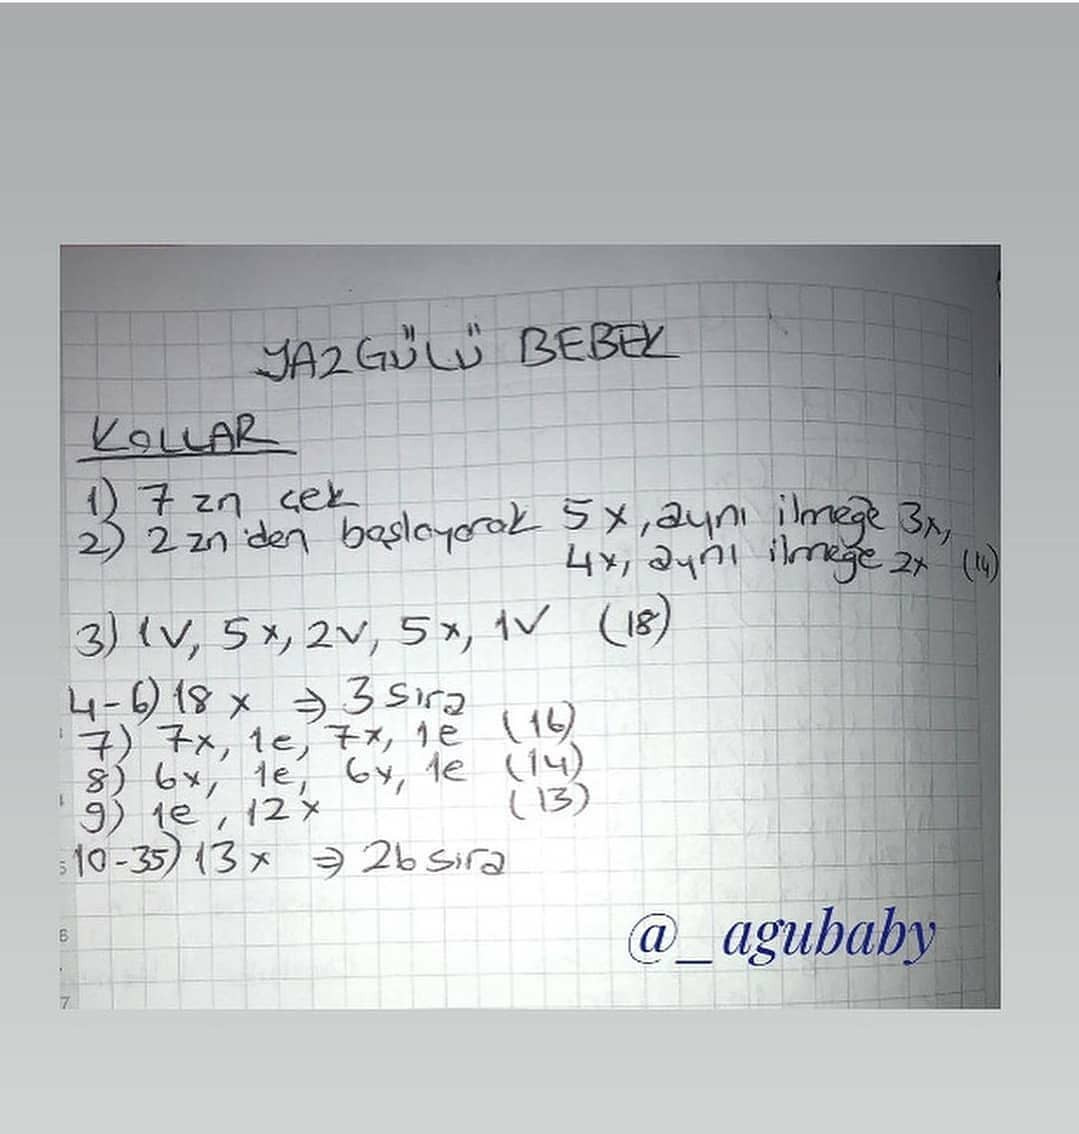 YAZGÜLÜ BEBEK
KOLLAR
1) 7 zn çek
2) 2 zn'den başlayarak 5x, aynı ilmeğe 3x,
4x, aynı ilmeğe 2x (14)
3) 1V, 5x, 2V, 5x, 1V (18)
4-6) 18 x ⇒ 3 sıra
7) 7x, 1e, 7x, 1e (16)
8) 6x, 1e, 6x, 1e (14)
9) 1e, 12x (13)
10-35) 13x ⇒ 26 sıra
@_agubaby
6
7